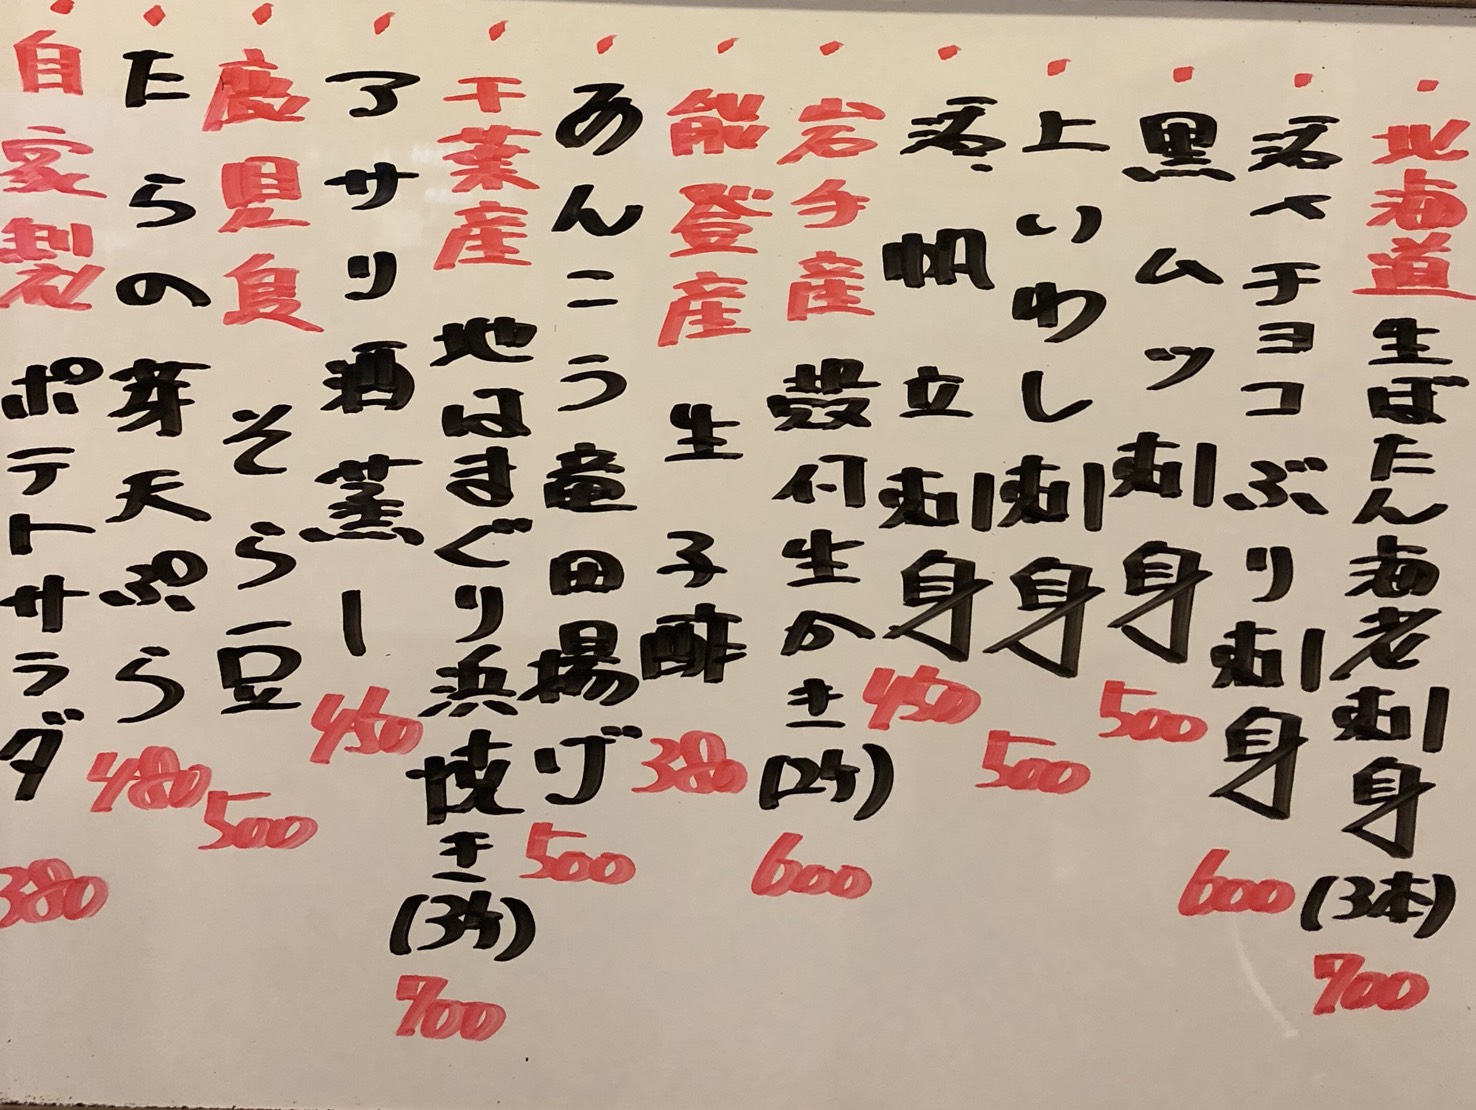 北海道 生ぼたん海老刺身(3本) 700
活〆チョコぶり刺身 600
黒ムツ刺身 500
上いわし刺身 500
活帆立刺身 450
岩手産 殻付生かき(2ケ) 600
能登産 生子酢 380
あんこう竜田揚げ 500
千葉産 地はまぐり浜焼き(3ケ) 700
アサリ酒蒸し 450
鹿児島 そら豆 500
たらの芽天ぷら 480
自家製 ポテトサラダ 380